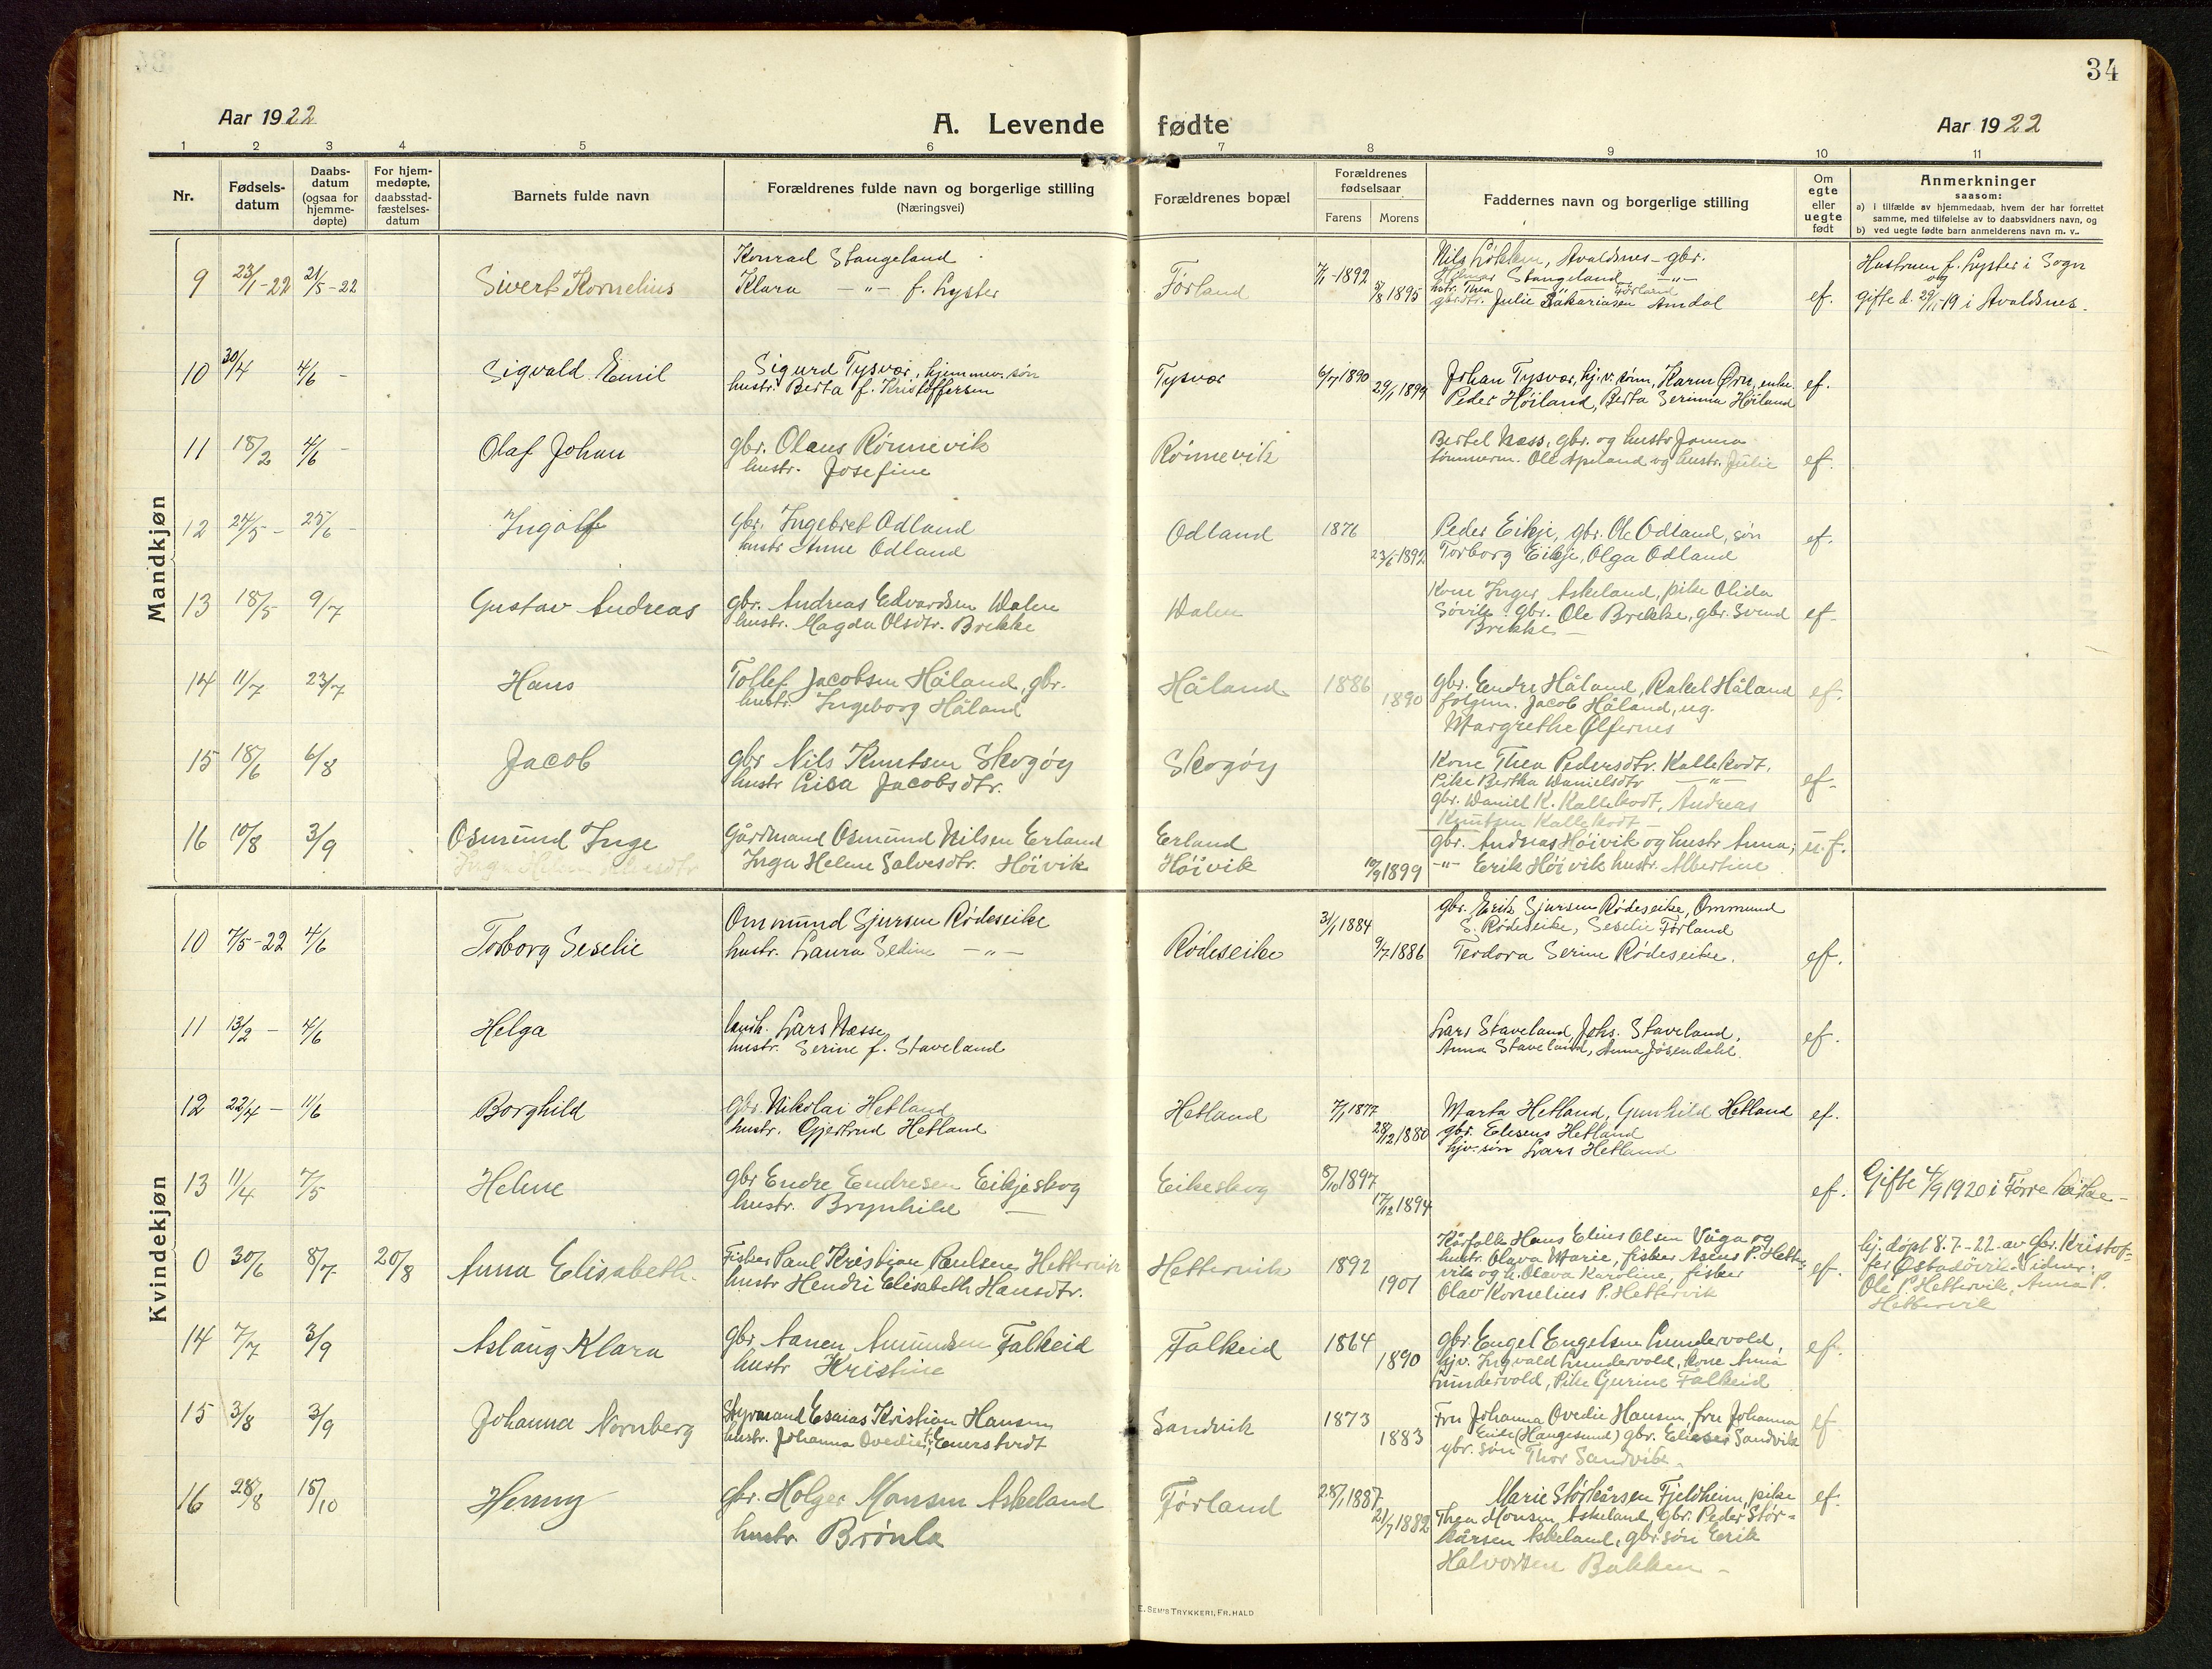 34
Aar 1922
A. Levende fødte
Aar 1922
1 2 3 4 5 6 7 8 9 10 11
Nr.
Fødsels-
datum
Daabs-
datum
(ogsaa for
hjemme-
døpte)
For hjem-
medøpte,
daabsstad-
fæstelses-
datum
Barnets fulde navn
Forældrenes fulde navn og borgerlige stilling
(Næringsvei)
Forældrenes bopæl
Forældrenes
fødselsaar
Farens Morens
Faddernes navn og borgerlige stilling
Om
egte
eller
uegte
født
Anmerkninger
saasom:
a) i tilfælde av hjemmedaab, hvem der har forrettet
samme, med tilføielse av to daabsvidners navn, og
b) ved uegte fødte barn anmelderens navn m. v..
Mandkjøn
9 23/1-22 21/5-22 Sivert Kornelius
Konrad Stangeland
Klara -"- f. Lyster
Førland 7/1-1892 5/8 1895
Nils Løkken, Avaldsnes - gbr.
Hilmar Stangeland -"-
hstr. Thea -"- Førland
gbrdtr. Julie Sakariasen Amdal
ef.
Hustruen f. Lyster i Sogn
og
Gifte d. 29/11-19 i Avaldsnes.
10 30/4 4/6 - Sigvald Emil
Sigurd Tysvær, hjemmev. søn
hustr. Berta f. Kristoffersen
Tysvær 6/7 1890 29/1 1894
Johan Tysvær, hj.v. sønn, Karen Ørn, enke.
Peder Høiland, Berta Serinna Høiland
ef.
11 18/2 4/6 - Olaf Johan
gbr. Olaus Rønnevik
hustr. Josefine
Rønnevik
Bertel Næss, gbr. og hustr Janna
tømmerm. Ole Apeland og hustr. Julie
ef.
12 24/5 - 25/6 - Ingolf
gbr. Ingebret Odland
hustr Anne Odland
Odland 1876 23/6 1892
Peder Eikje, gbr. Ole Odland, søn
Torborg Eikje, Olga Odland
ef.
13 18/5 9/7 Gustav Andreas
gbr. Andreas Edvardsen Walen
hustr. Magda Olsdtr. Brekke
Walen
Kone Inger Askeland, pike Olida
Søvik. gbr. Ole Brekke, gbr. Svend
Brekke -
ef.
14 11/7 23/7 Hans
Tollef Jacobsen Håland, gbr.
hustr. Ingeborg Håland
Håland 1886 1890
gbr. Endre Håland, Rakel Håland
folgem. Jacob Håland, ug.
Margrethe Ølfernes
ef.
15 18/6 6/8 Jacob
gbr Nils Knutsen Skogøy
hustr Lisa Jacobsdtr.
Skogøy
Kone Thea Pedersdtr. Kallekodt,
Pike Bertha Danielsdtr -"-
gbr. Daniel K. Kallekodt, Andreas
Knutsen Kallekodt -
ef.
16 10/8 3/9 Osmund Inge
Gårdmand Osmund Nilsen Erland
Inga Helene Salvesdtr. Høivik
Erland
Høivik 10/9 1899
gbr. Andreas Høivik og hustr Anna,
-"- Erik Høivik hustr. Albertine
u.f.
Kvindekjøn
10 7/5-22 4/6 Torborg Seselie
Ommund Sjursen Rødeseike
hustr. Laura Sedine -"-
Rødeseike 31/1 1884 9/7 1886
gbr. Erik Sjursen Rødeseike, Ommund
S. Rødeseike, Seselie Førland
Teodora Serine Rødeseike.
ef.
11 13/2 - 4/6 Helga
Lars Næsse
hustr. Serine f. Staveland
Lars Staveland, Johs. Staveland,
Anna Staveland, Anna Jøsendahl.
ef.
12 22/4 - 11/6 Borghild
gbr. Nikolai Hetland
hustr. Gjertrud Hetland
Hetland 7/1 1877 28/12 1880
Marta Hetland, Gunhild Hetland
gbr. Eleseus Hetland
hjv. søn Lars Hetland
ef.
13 11/4 7/5 Helene
gbr Endre Endresen Eikjeskog
hustr. Brynhild -
Eikeskog 8/10 1897 17/12 1894
ef.
Gifte 4/9 1920 i Førre kirke -
0 30/6 8/7 20/8 Anna Elisabeth.
Fisker Paul Kristian Paulsen Hettervik
hustr Hendri Elisabeth Hansdtr.
Hettervik 1892 1901
Kårfolk Hans Elius Olsen Våga og
hustr. Olava Marie, fisker Aseus P. Hetter
vik og h. Olava Karoline, fisker
Olav Kornelius P. Hettervik
ef.
hj. døpt 8.7-22 av gbr. Kristof-
fer Østadøvik. Vidner:
Ole P. Hettervik, Anna P.
Hettervik
14 7/7 3/9 Aslaug Klara
gbr Aanen Amundsen Falkeid
hustr Kristine
Falkeid 1864 1890
gbr. Engel Engelsen Lundervold,
hjv. Ingvald Lundervold, kone Anna
Lundervold, Pike Gurine Falkeid
ef.
15 3/8 3/9 Johanna Nornberg
Styrmand Esaias Kristian Hansen
hustr. Johanna Ovedie f. Enerstvedt
Sandvik 1873 1883
Fru Johanna Ovedie Hansen, fru Johanna
Eide (Haugesund) gbr. Elieser Sandvik
gbr. søn Thor Sandvik.
ef
16 28/8 15/10 Henny
gbr. Holger Monsen Askeland
hustr Brønla
Førland 28/1 1887 21/7 1882
Marie Størkårsen Fjeldheim, pike
Thea Monsen Askeland, gbr. Peder Stør-
kårsen Askeland, gbr søn Eerik
Halvorsen Bakken -
ef.
E. SEM'S TRYKKERI, FR. HALD